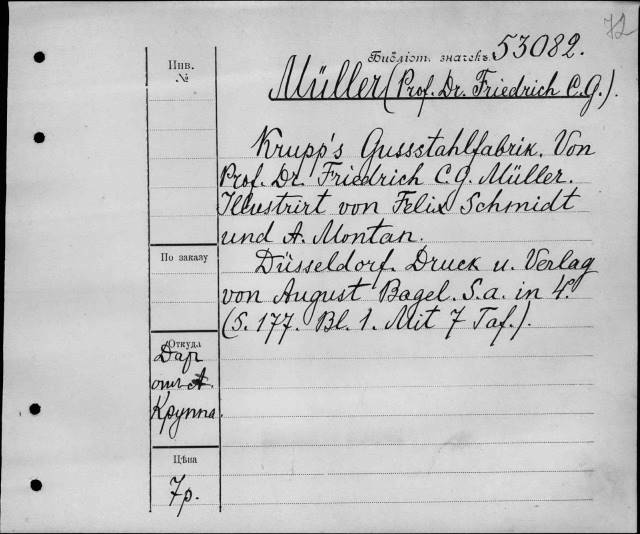 72
Библіот. значекъ 53082.
Инв.
№
Müller (Prof. Dr. Friedrich C. G.).
Krupp's Gussstahlfabrik. Von
Prof. Dr. Friedrich C. G. Müller.
Illustrirt von Felix Schmidt
und A. Montan.
По заказу
Düsseldorf. Druck u. Verlag
von August Bagel. S. a. in 4.°
(S. 177. Bl. 1. Mit 7 Taf.).
Откуда
Дар
отъ А.
Круппа.
Цѣна
7р.